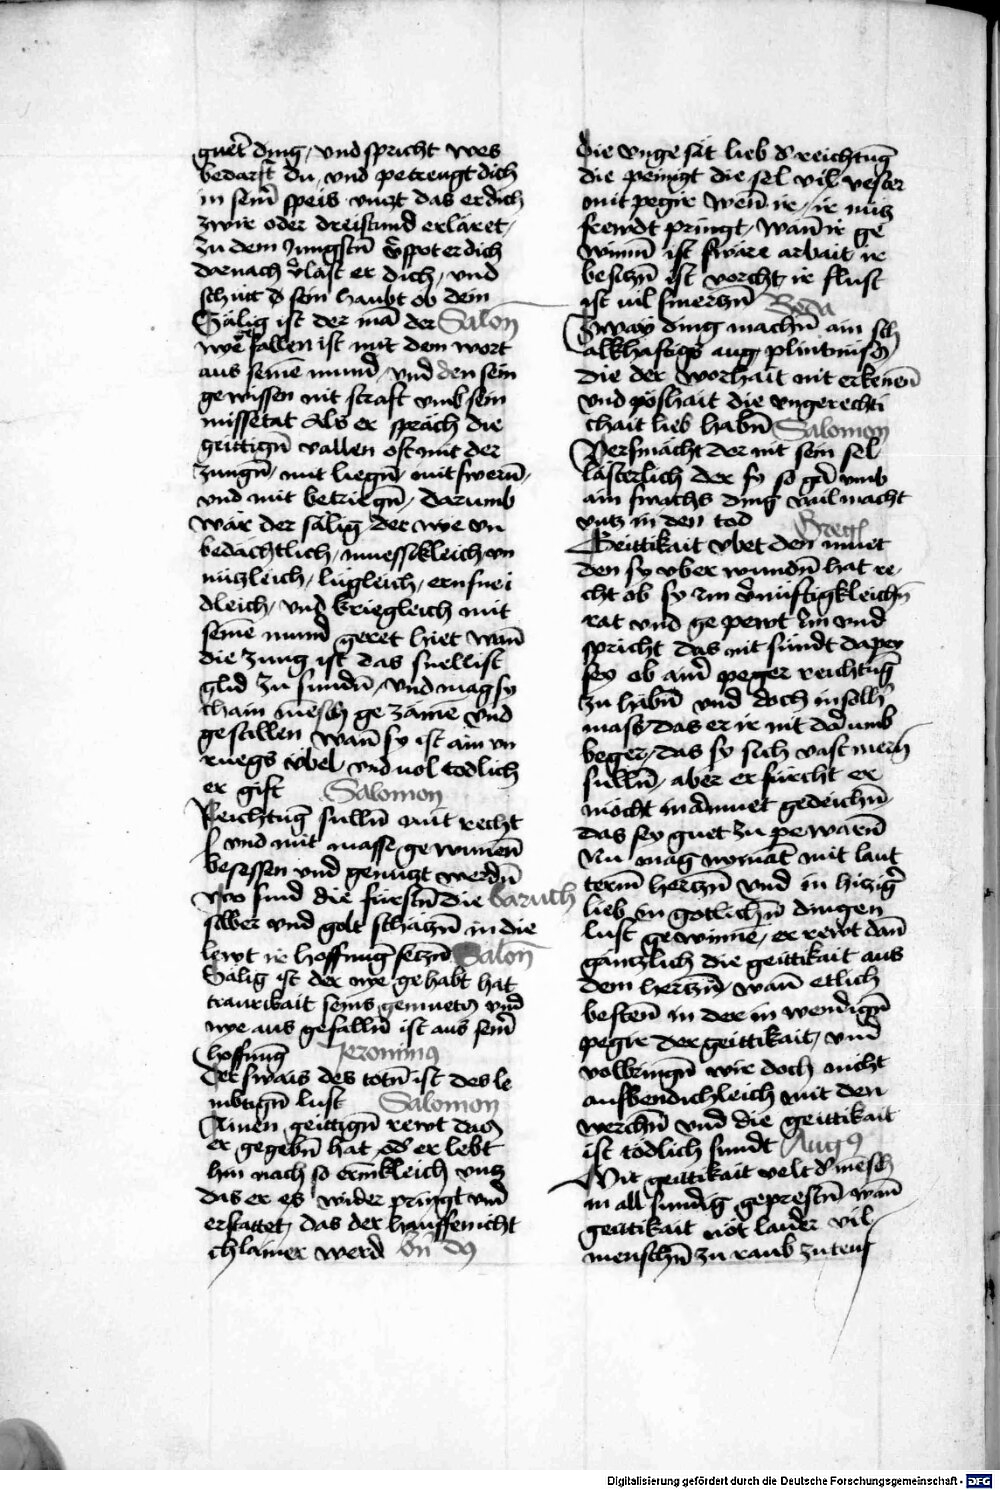 guet̄ ding / vnd spricht wes
bedarft du / vnd petreugt dich
in sein̄ speis vnczt das er dich
zwir oder dreistund erläret /
Zu dem Jungstn̄ v̄spot er dich
darnach v̄last er dich / vnd
schütt d sein haubt ob dein
Sälig ist der mā der Salon
we gefallen ist mit dem wort
aus seinē mund / vnd den sein
gewissen nit straft vmb sein
missetat Als er spräch die
geittign̄ vallen oft mit der
zungn̄ / mit liegn̄ / mit swern̄ /
vnd mit betriegn̄ / darumb
wär der sälig der nye vn
bedächtlich / muessikleich vn
nüczleich / lugleich / ern snei
dleich / vnd kriegleich mit
seinē mund geret hiet wan̄
die zung ist das snellist
glid zu sundn̄ / vnd mag sy
chain mēsch ge zämē vnd
gestillen wan̄ sy ist ain vn
ruegs übel vnd vol tödlich
er gift Salomon
Reichtūg sulln̄ mit recht
vnd mit masse gewunnen̄
besessen vnd genuczt werdn̄
Wo sind die fürstn̄ die baruch
silber vnd golt schäczn̄ in die
lewt ir hoffnūg seczn̄ Salon̄
Sälig ist der nye gehabt hat
traurikait seins gemuets vnd
nye aus gefalln̄ ist aus sein̄
hoffnūg Jeronimus
Der swais des totn̄ ist des le
mbtign̄ lust Salomon
Ainen geittign̄ rewt das
er gegebn̄ hat od̄ er lebt
hin nach so ermkleich vncz
das er es wider pringt vnd
erstattet / das der hauffe nicht
chlainer werd
die vnge sät lieb d̄ reichtūg
die peinigt die sel vil vester
mit pegir wen̄ ir / ir nücz
frewdt pringt / wan̄ ir ge
winnn̄ ist swäre arbait ir
besiczn̄ ist vorcht / ir flust
ist vil smerczn̄ Beda
Zway ding machn̄ ain sch
alkhaftigs aug / plintnüss
die der worhait nit erkenen̄
vnd poshait die vngerechti
chait lieb habn̄ Salomon
Versmächt der nit sein sel
lästerlich der sy so gar̄ vmb
ain swachs ding vail macht
vntz in den tod Greg
Geittikait vbet den muet
den sy vber wundn̄ hat re
cht ob sy im v̄nüftigkleichn̄
rat vnd ge pewt im vnd
spricht das nit sündt dapey
sey ob aim̄ peger reichtūg
zu habn̄ vnd doch in solh̄
mass / das er ir nit dar̄umb
beger / das sy sich vast mern̄
sulln̄ / aber er fürcht er
möcht in armuet gedeichn̄
das sey guet zu pewarn̄
Nu mag nymāt mit laut
term̄ herczn̄ vnd in hicziger̄
lieb in gotlichn̄ dingen
lust gewinnē / er rewt dan̄
gänczlich die geittikait aus
dem herczn̄ / wan̄ etlich
besten̄ in der in wendign̄
pegir der geittikait / vnd
volbringn̄ wir doch nicht
auswendichleich mit den
werchn̄ vnd die geittikait
ist tödlich sundt Augus
Mit geittikait velt d̄ mēsch
in all sundig geprestn̄ wan̄
geittikait nöt laider vil
menschn̄ zu raub zu teuf